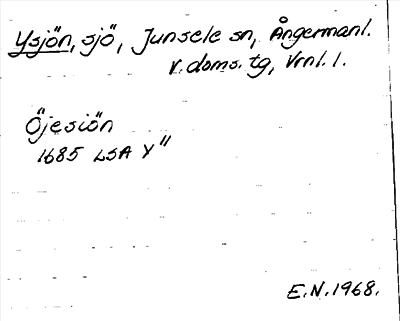 Ysjön, sjö, Junsele sn, Ångermanl.
v. doms. tg, Vrnl. l.
Öjesiön
1685 LSA Y"
E.N. 1968.